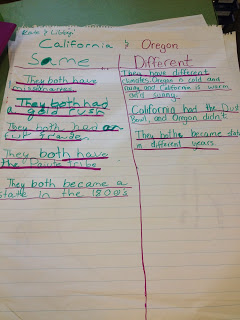 California & Oregon
Same
They both have
missionaries
They both had
a gold rush
They both had
fur trade.
They both have
the Paiute tribe
They both became a
state in the 1800's
Different
They have different
Oregon is cold and
and California is warm
and sunny.
California had the Dust
Bowl, and Oregon didn't
They became state
in different years.